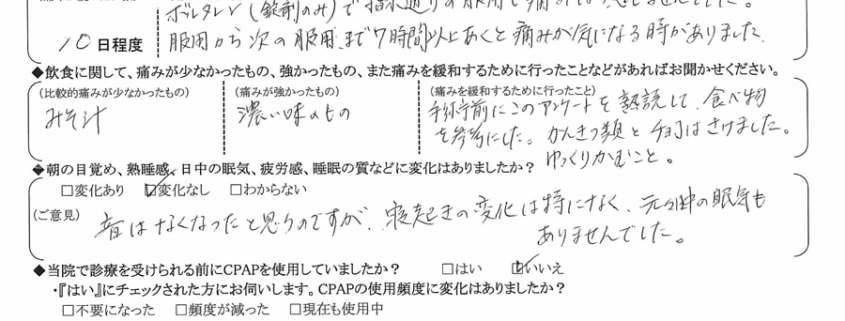 ボルタレン(錠剤のみ)で指示通りの服用で痛みは感じませんでした。
10日程度
服用から次の服用まで7時間以上あくと痛みが気になる時がありました。
◆飲食に関して、痛みが少なかったもの、強かったもの、また痛みを緩和するために行ったことなどがあればお聞かせください。
(比較的痛みが少なかったもの) (痛みが強かったもの) (痛みを緩和するために行ったこと)
みそ汁 濃い味のもの 手術前にこのアンケートを熟読して、食べ物
を参考にした。かんきつ類とチョコはさけました。
ゆっくりかむこと。
◆朝の目覚め、熟睡感、日中の眠気、疲労感、睡眠の質などに変化はありましたか?
□変化あり ☑変化なし □わからない
(ご意見) 音はなくなったと思うのですが、寝起きの変化は特になく、元々日中の眠気も
ありませんでした。
◆当院で診療を受けられる前にCPAPを使用していましたか? □はい ☑いいえ
・『はい』にチェックされた方にお伺いします。CPAPの使用頻度に変化はありましたか?
□不要になった □頻度が減った □現在も使用中